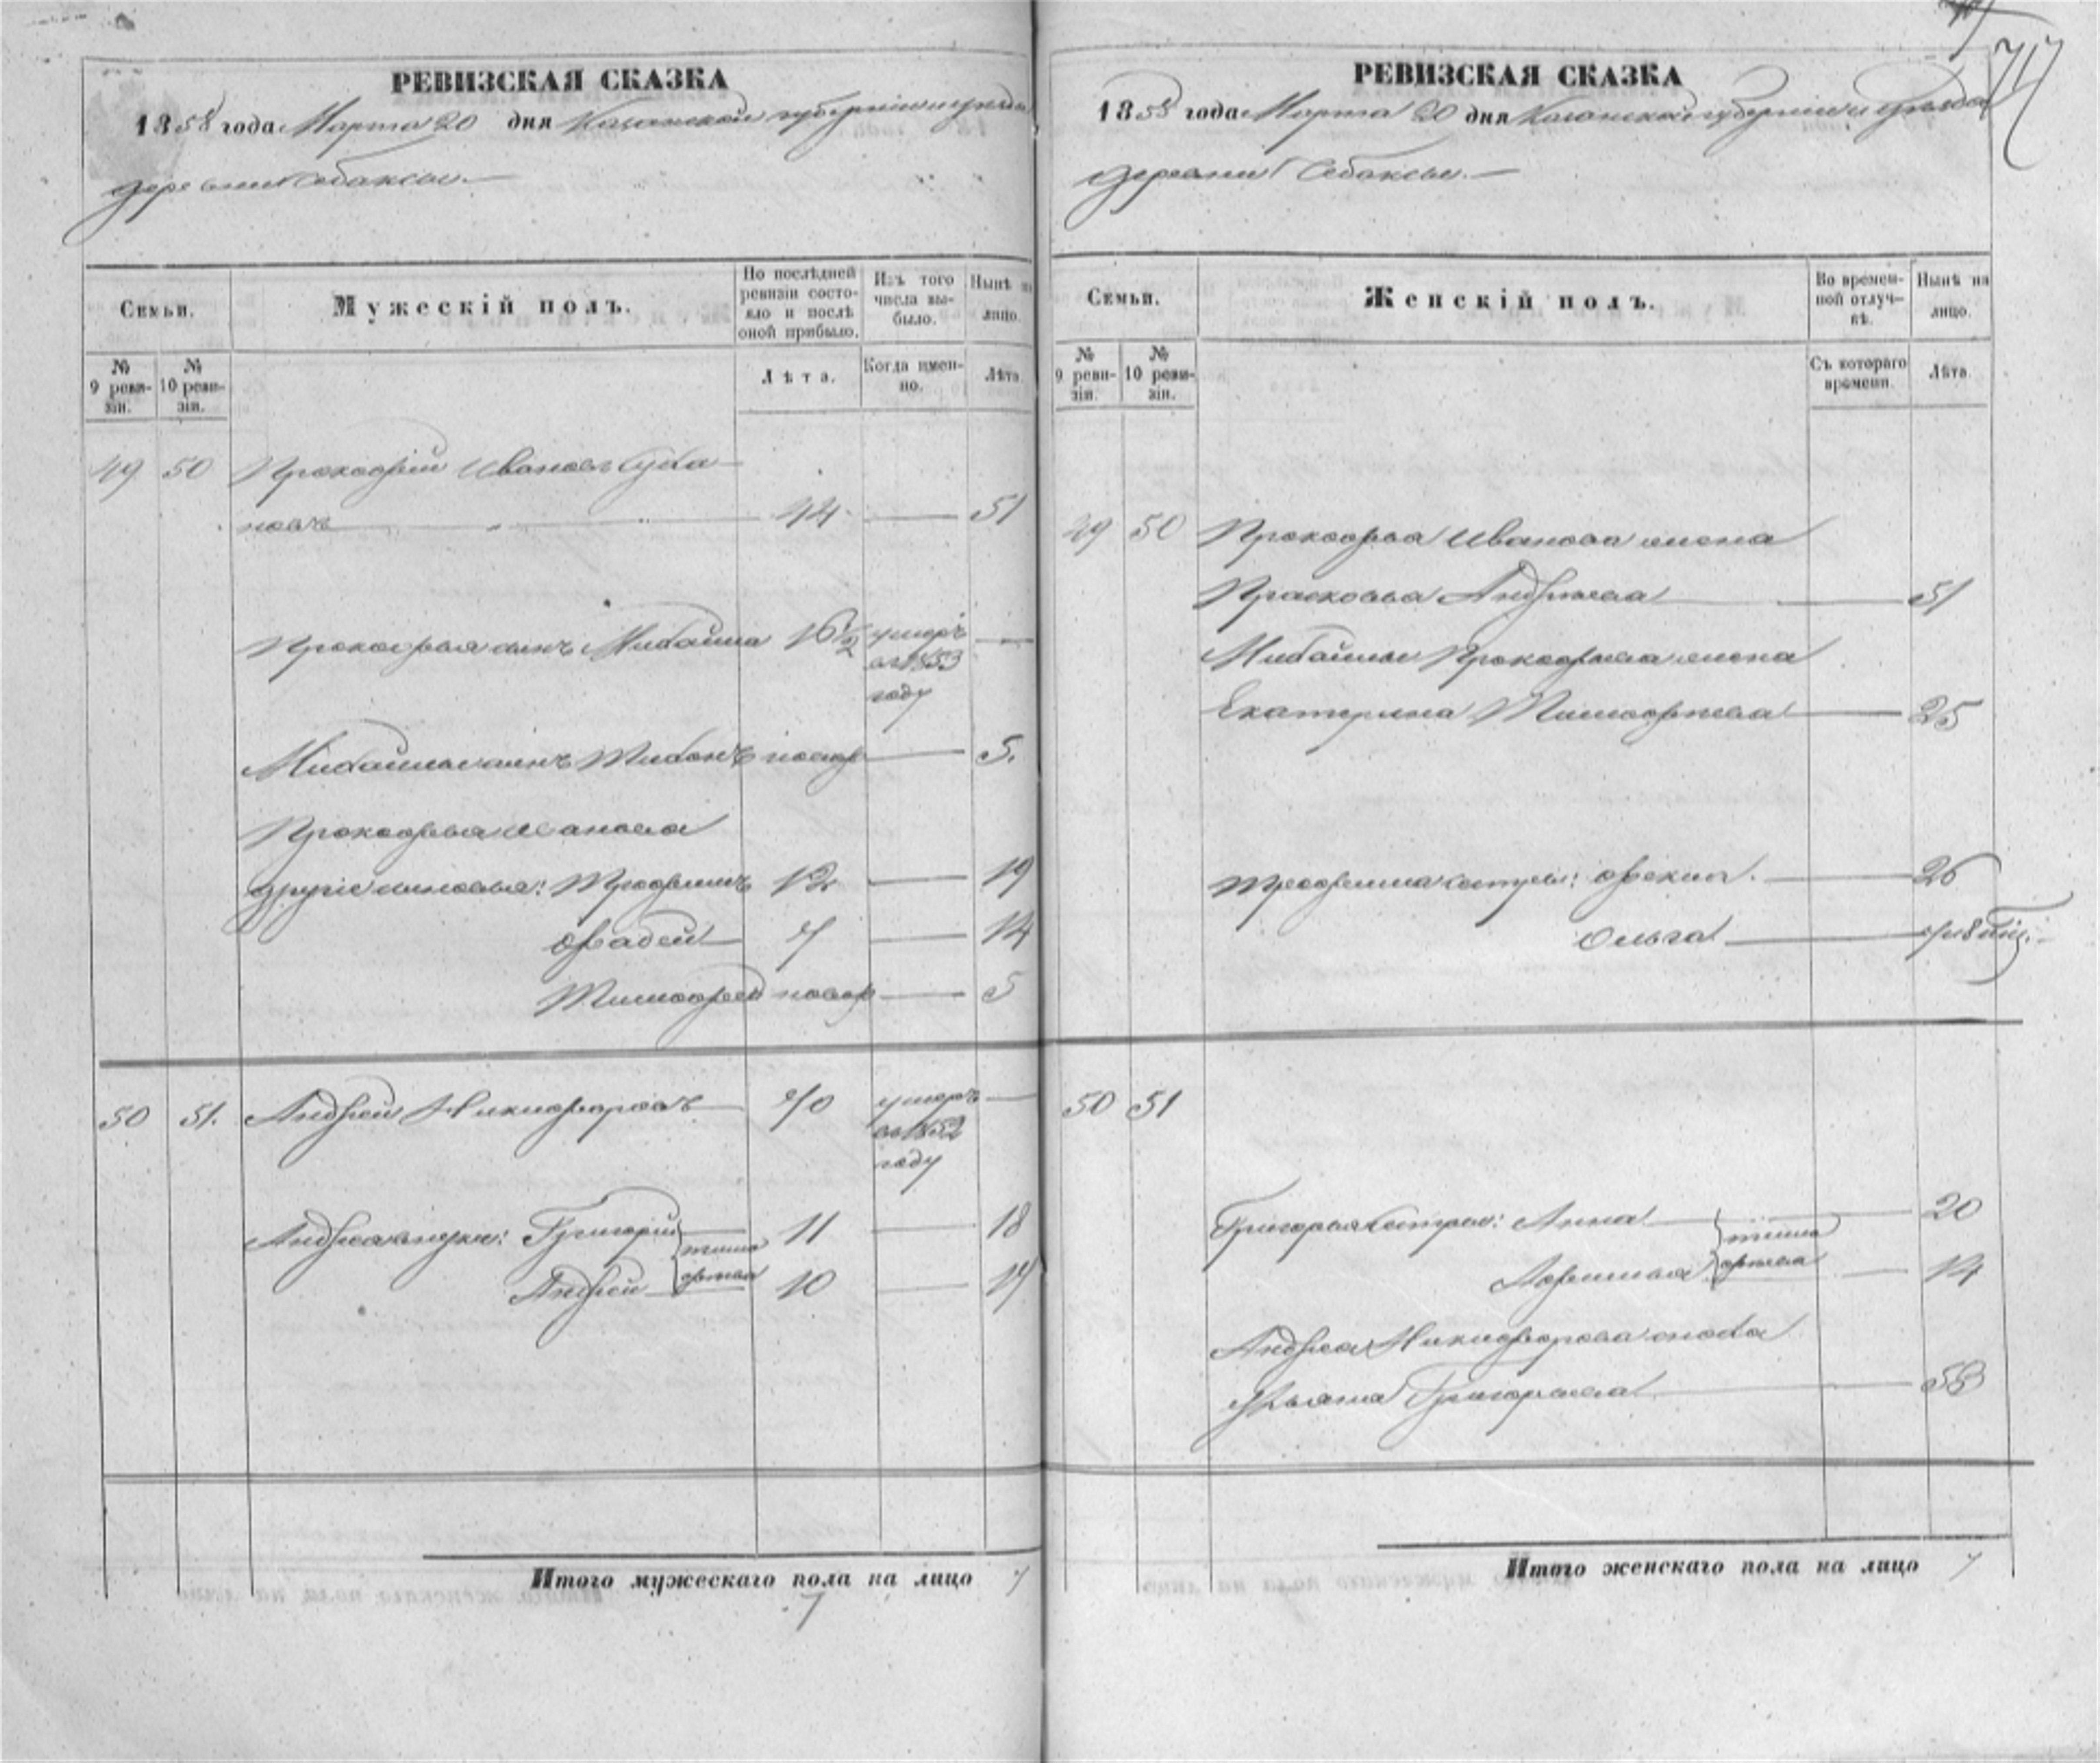 РЕВИЗСКАЯ СКАЗКА
1858 года Марта 20 дня Казанской губернии и уезда
деревни Собаксы.
Семьи.
Мужескій полъ.
По послѣдней ревизіи состояло и послѣ оной прибыло.
Изъ того числа выбыло.
Нынѣ на лицо.
№ 9 ревизіи.
№ 10 ревизіи.
Лѣта.
Когда именно.
Лѣта.
49 50 Прокофій Ивановъ
новъ 44 51
Прокофья сынъ Михайла 16½ умеръ
въ 1853
году
Михайлы сынъ Тихонъ новор 5.
Прокофья Иванова
другіе сыновья: Трофимъ 12 19
Фадей 7 14
Тимофей новор 5
50 51. Андрей Никифоровъ 70 умеръ
въ 1852
году
Андрея внуки: Григорій 11 18
Тимофѣевы
Андрей 10 17
Итого мужескаго пола на лицо 7
7
РЕВИЗСКАЯ СКАЗКА
1858 года Марта 20 дня Казанской губерніи и уезда
деревни Собаксы.
Семьи.
Женскій полъ.
Во временной отлучкѣ.
Нынѣ на лицо.
№ 9 ревизіи.
№ 10 ревизіи.
Съ котораго времени.
Лѣта.
49 50 Прокофья Иванова жена
Прасковья Андрѣева 51
Михайлы Прокофьева жена
Екатерина Тимофѣева 25
Трофима сестры: Фекла. 26
Ольга
50 51
Григорья сестры: Анна 20
Тимофѣевы
Афимья 14
Андрея Никифорова сноха
Ульяна Григорьева 58
Итого женскаго пола на лицо 7